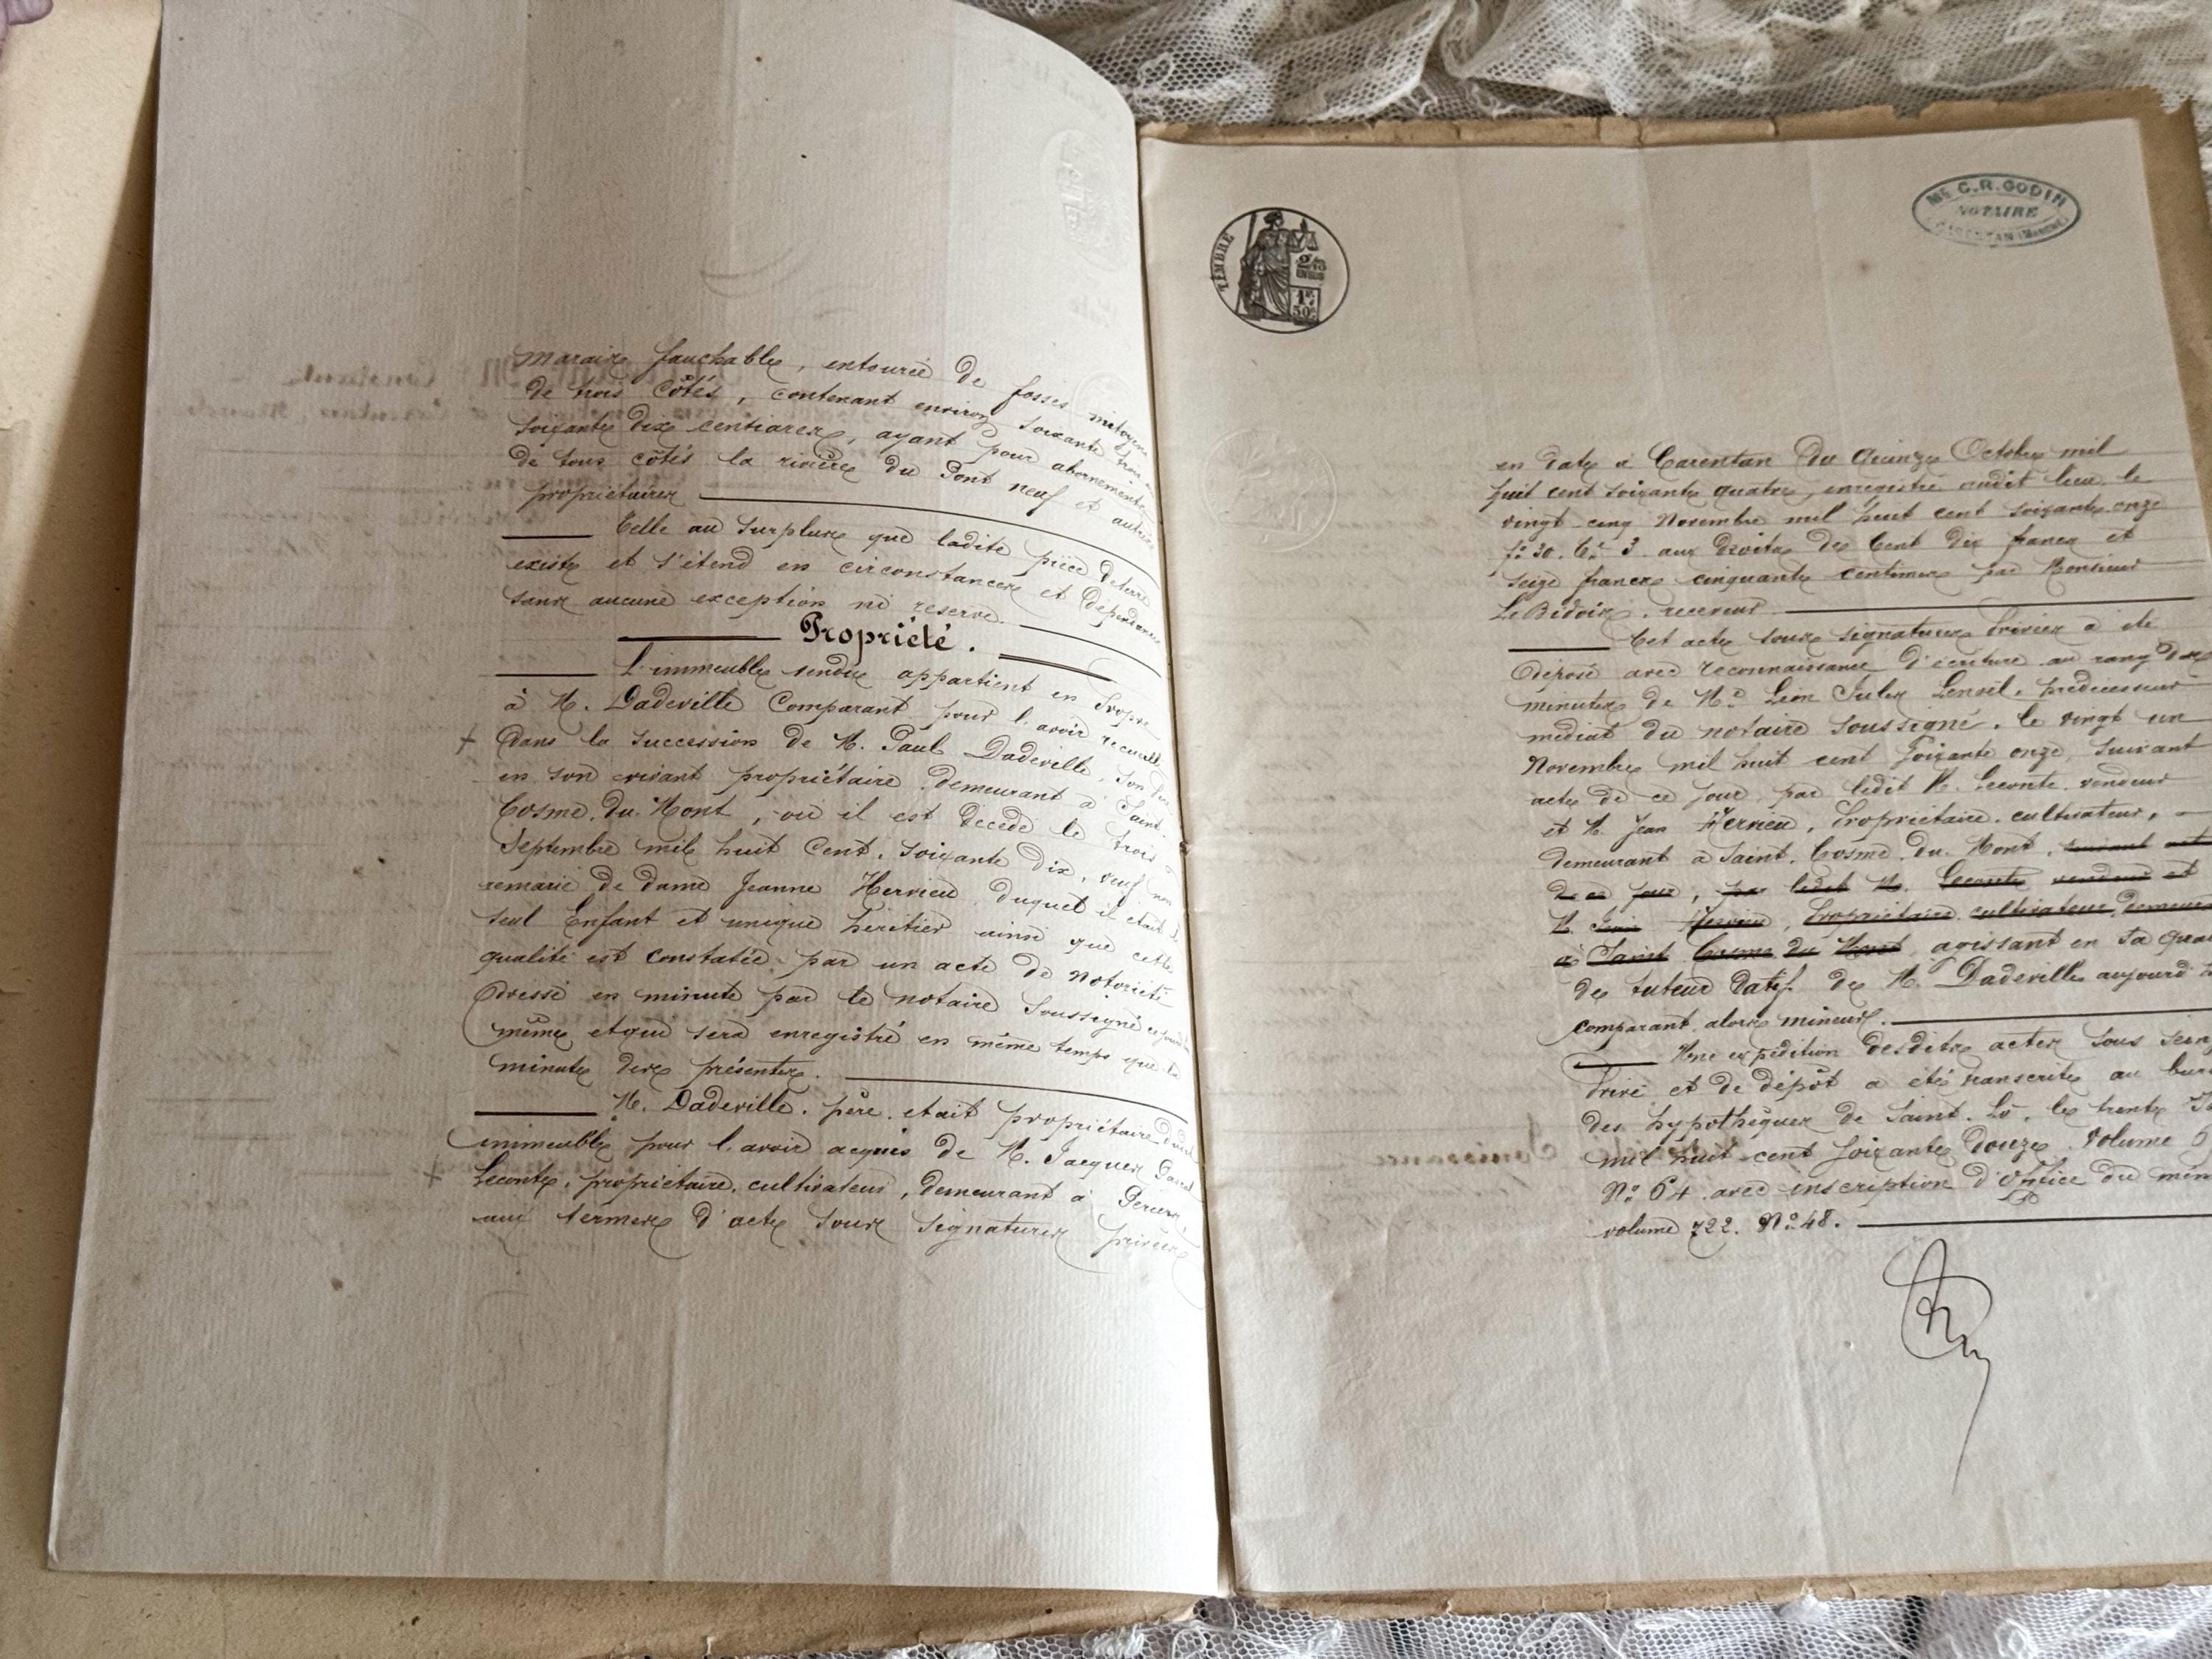 marais fauchable, entourée de fossés mitoyens
de trois côtés, contenant environ soixante trois
soixante dix centiares, ayant pour abornements
de tous côtés la rivière du Pont neuf et autres
propriétaires
Telle au surplus que ladite pièce de terre
existe et s'étend en circonstances et dépendances
sans aucune exception ni reserve.
Propriété.
L'immeuble vendu appartient en propre
à M. Dadeville Comparant pour l'avoir recueilli
dans la succession de M. Paul Dadeville, son
en son vivant propriétaire demeurant à Saint
Cosme du Mont, où il est décédé le trois
Septembre mil huit Cent soixante dix, veuf non
remarié de dame Jeanne Hervieu duquel il était le
seul Enfant et unique héritier ainsi que cette
qualité est constatée par un acte de notoriété
dressé en minute par le notaire Soussigné
même et qui sera enregistré en même temps que la
minute des présentes.
M. Dadeville. père. etait propriétaire dudit
immeuble pour l'avoir acquis de M. Jacques
Leconte, propriétaire, cultivateur, demeurant à
aux termes d'acte sous signatures privées
TIMBRE
2/10
EN SUS
1F
50c
Me C.R. GODIN
NOTAIRE
CARENTAN (MANCHE)
en date à Carentan du Quinze Octobre mil
huit cent soixante quatre, enregistré audit lieu le
vingt cinq Novembre mil huit cent soixante onze
fo 30. Co 3 aux droits de Cent dix francs et
seize francs cinquante centimes par Monsieur
Le Bédoix, receveur
Cet acte sous signatures privées a été
déposé avec reconnaissance d'écriture au rang des
minutes de Me Léon Jules Lenoël, prédécesseur
médiat du notaire soussigné, le vingt un
Novembre mil huit cent soixante onze, suivant
acte de ce jour par ledit M. Leconte vendeur
et M. Jean Hervieu, Propriétaire cultivateur,
demeurant à Saint. Cosme. du. Mont, suivant acte
de ce jour, par ledit M. Leconte vendeur et
M. Jean Hervieu, Propriétaire cultivateur, demeurant
à Saint Cosme du Mont agissant en sa qua
de tuteur datif de M. Dadeville aujourd'
comparant alors mineur.
Une expédition desdits actes sous sein
privé et de dépôt a été transcrite au bur
des hypothèques de Saint. Lô, le trente
mil huit cent soixante douze volume
No 64 avec inscription d'office du mêm
volume 722. No 48.